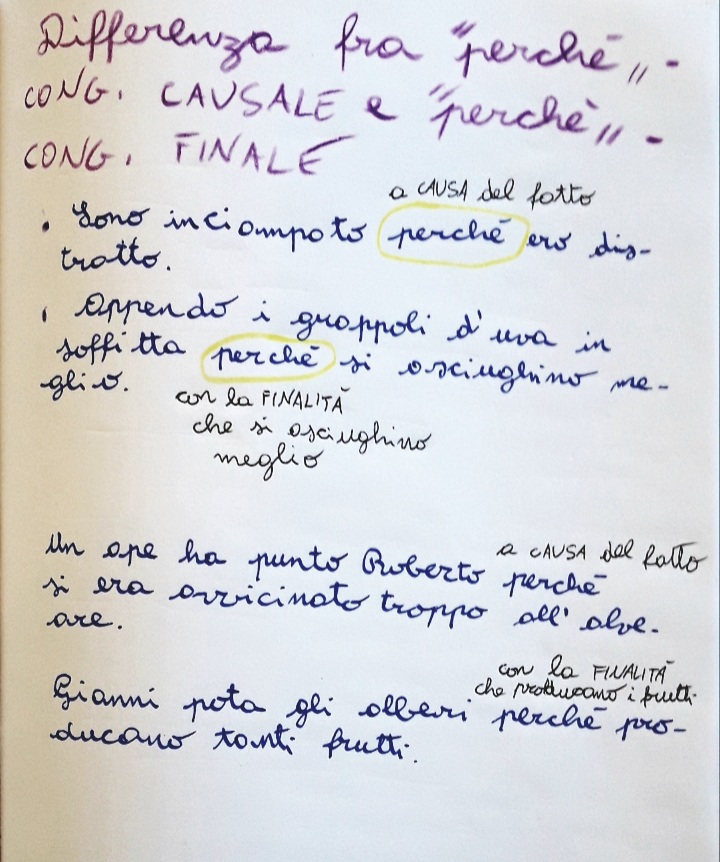 Differenza fra "perché" -
CONG. CAUSALE e "perchè" -
CONG. FINALE
a CAUSA del fatto
. Sono inciampato perché ero dis-
tratto.
. Appendo i grappoli d'uva in
soffitta perché si asciughino me-
glio.
con la FINALITÀ
che si asciughino
meglio
a CAUSA del fatto
Un ape ha punto Roberto perché
si era avvicinato troppo all'alve-
are.
con la FINALITÀ
che producano i frutti
Gianni pota gli alberi perché pro-
ducano tanti frutti.